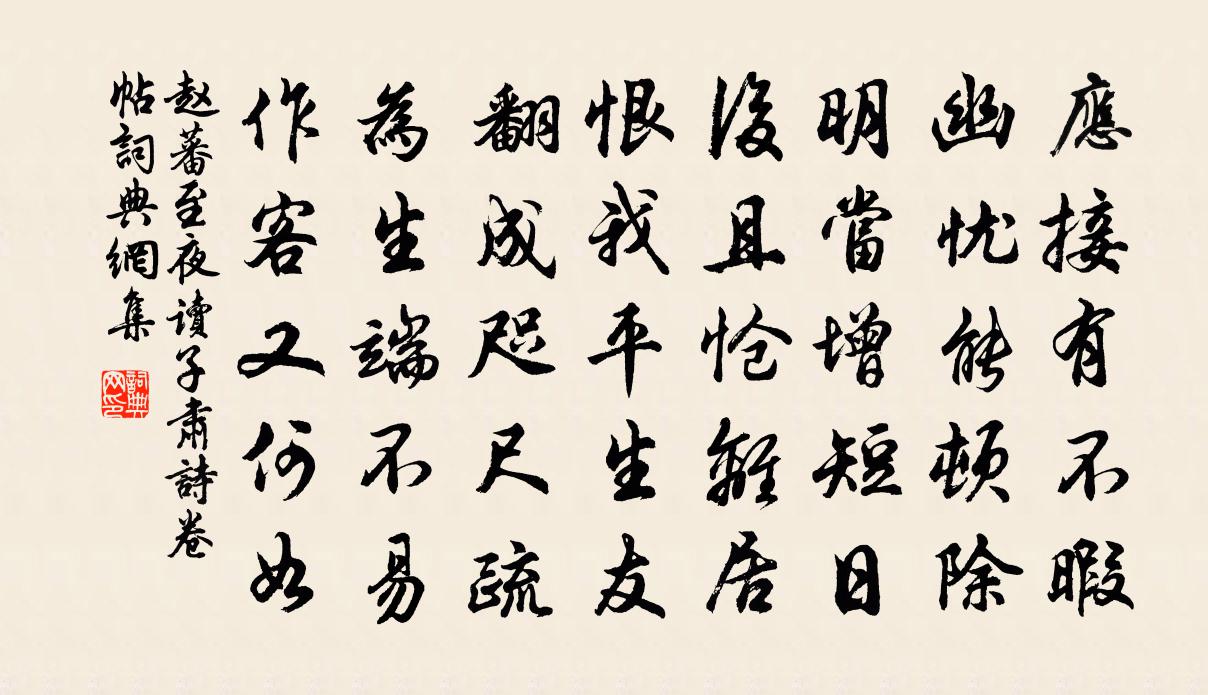 應接有不暇
幽忧能頓除
明當增短日
復且怆離居
恨我平生友
翻成咫尺疏
為生端不易
作客又何如
赵蕃至夜讀子肅詩卷
帖詞典網集
詞典
网印